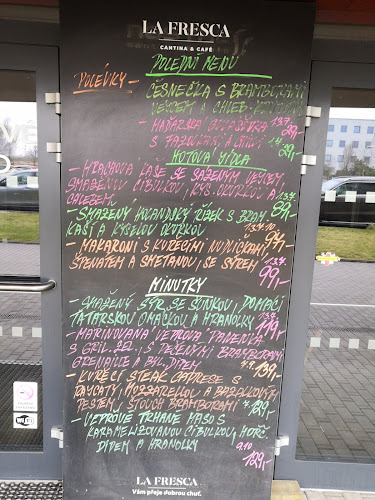 LA FRESCA
CANTINA & CAFÉ
POLEDNÍ MENU
POLÉVKY - ČESNEČKA S BRAMBORAMI,
VEJCEM A CHLEB.
- MAĎARSKÁ 1.3.7 29,-
S FAZOLEMI, 1.9 29,-
HOTOVÁ JÍDLA
- HRACHOVÁ KAŠE SE SÁZENÝM VEJCEM,
SMAŽENOU CIBULKOU, KYS. OKURKOU A
CHLEBEM 1.3.7 89,-
- SMAŽENÝ HOLANDSKÝ ŘÍZEK S BRAM.
KAŠÍ A KYSELOU OKURKOU 1.3.7.10 94,-
- MAKARONI S KUŘECÍMI NUDLIČKAMI,
ŠPENÁTEM A SMETANOU, SE SÝREM 1.3.7. 99,-
MINUTKY
- SMAŽENÝ SÝR SE ŠUNKOU, DOMÁCÍ
TATARSKOU OMÁČKOU A HRANOLKY 1.3.7 119,-
- MARINOVANÁ VEPŘOVÁ PANENKA
S GRIL. S PEČENÝMI BRAMBORAMI
GRENAILLE A BYL. DIPEM 139,-
- KUŘECÍ STEAK CAPRESE S
RAJČATY, MOZZARELLOU A BAZALKOVÝM
PESTEM, ŠŤOUCH. BRAMBORAMI 129,-
- VEPŘOVÉ TRHANÉ MASO S
KARAMELIZOVANOU CIBULKOU, HOŘČ.
DIPEM A HRANOLKY 9.10 129,-
LA FRESCA
Vám přeje dobrou chuť.